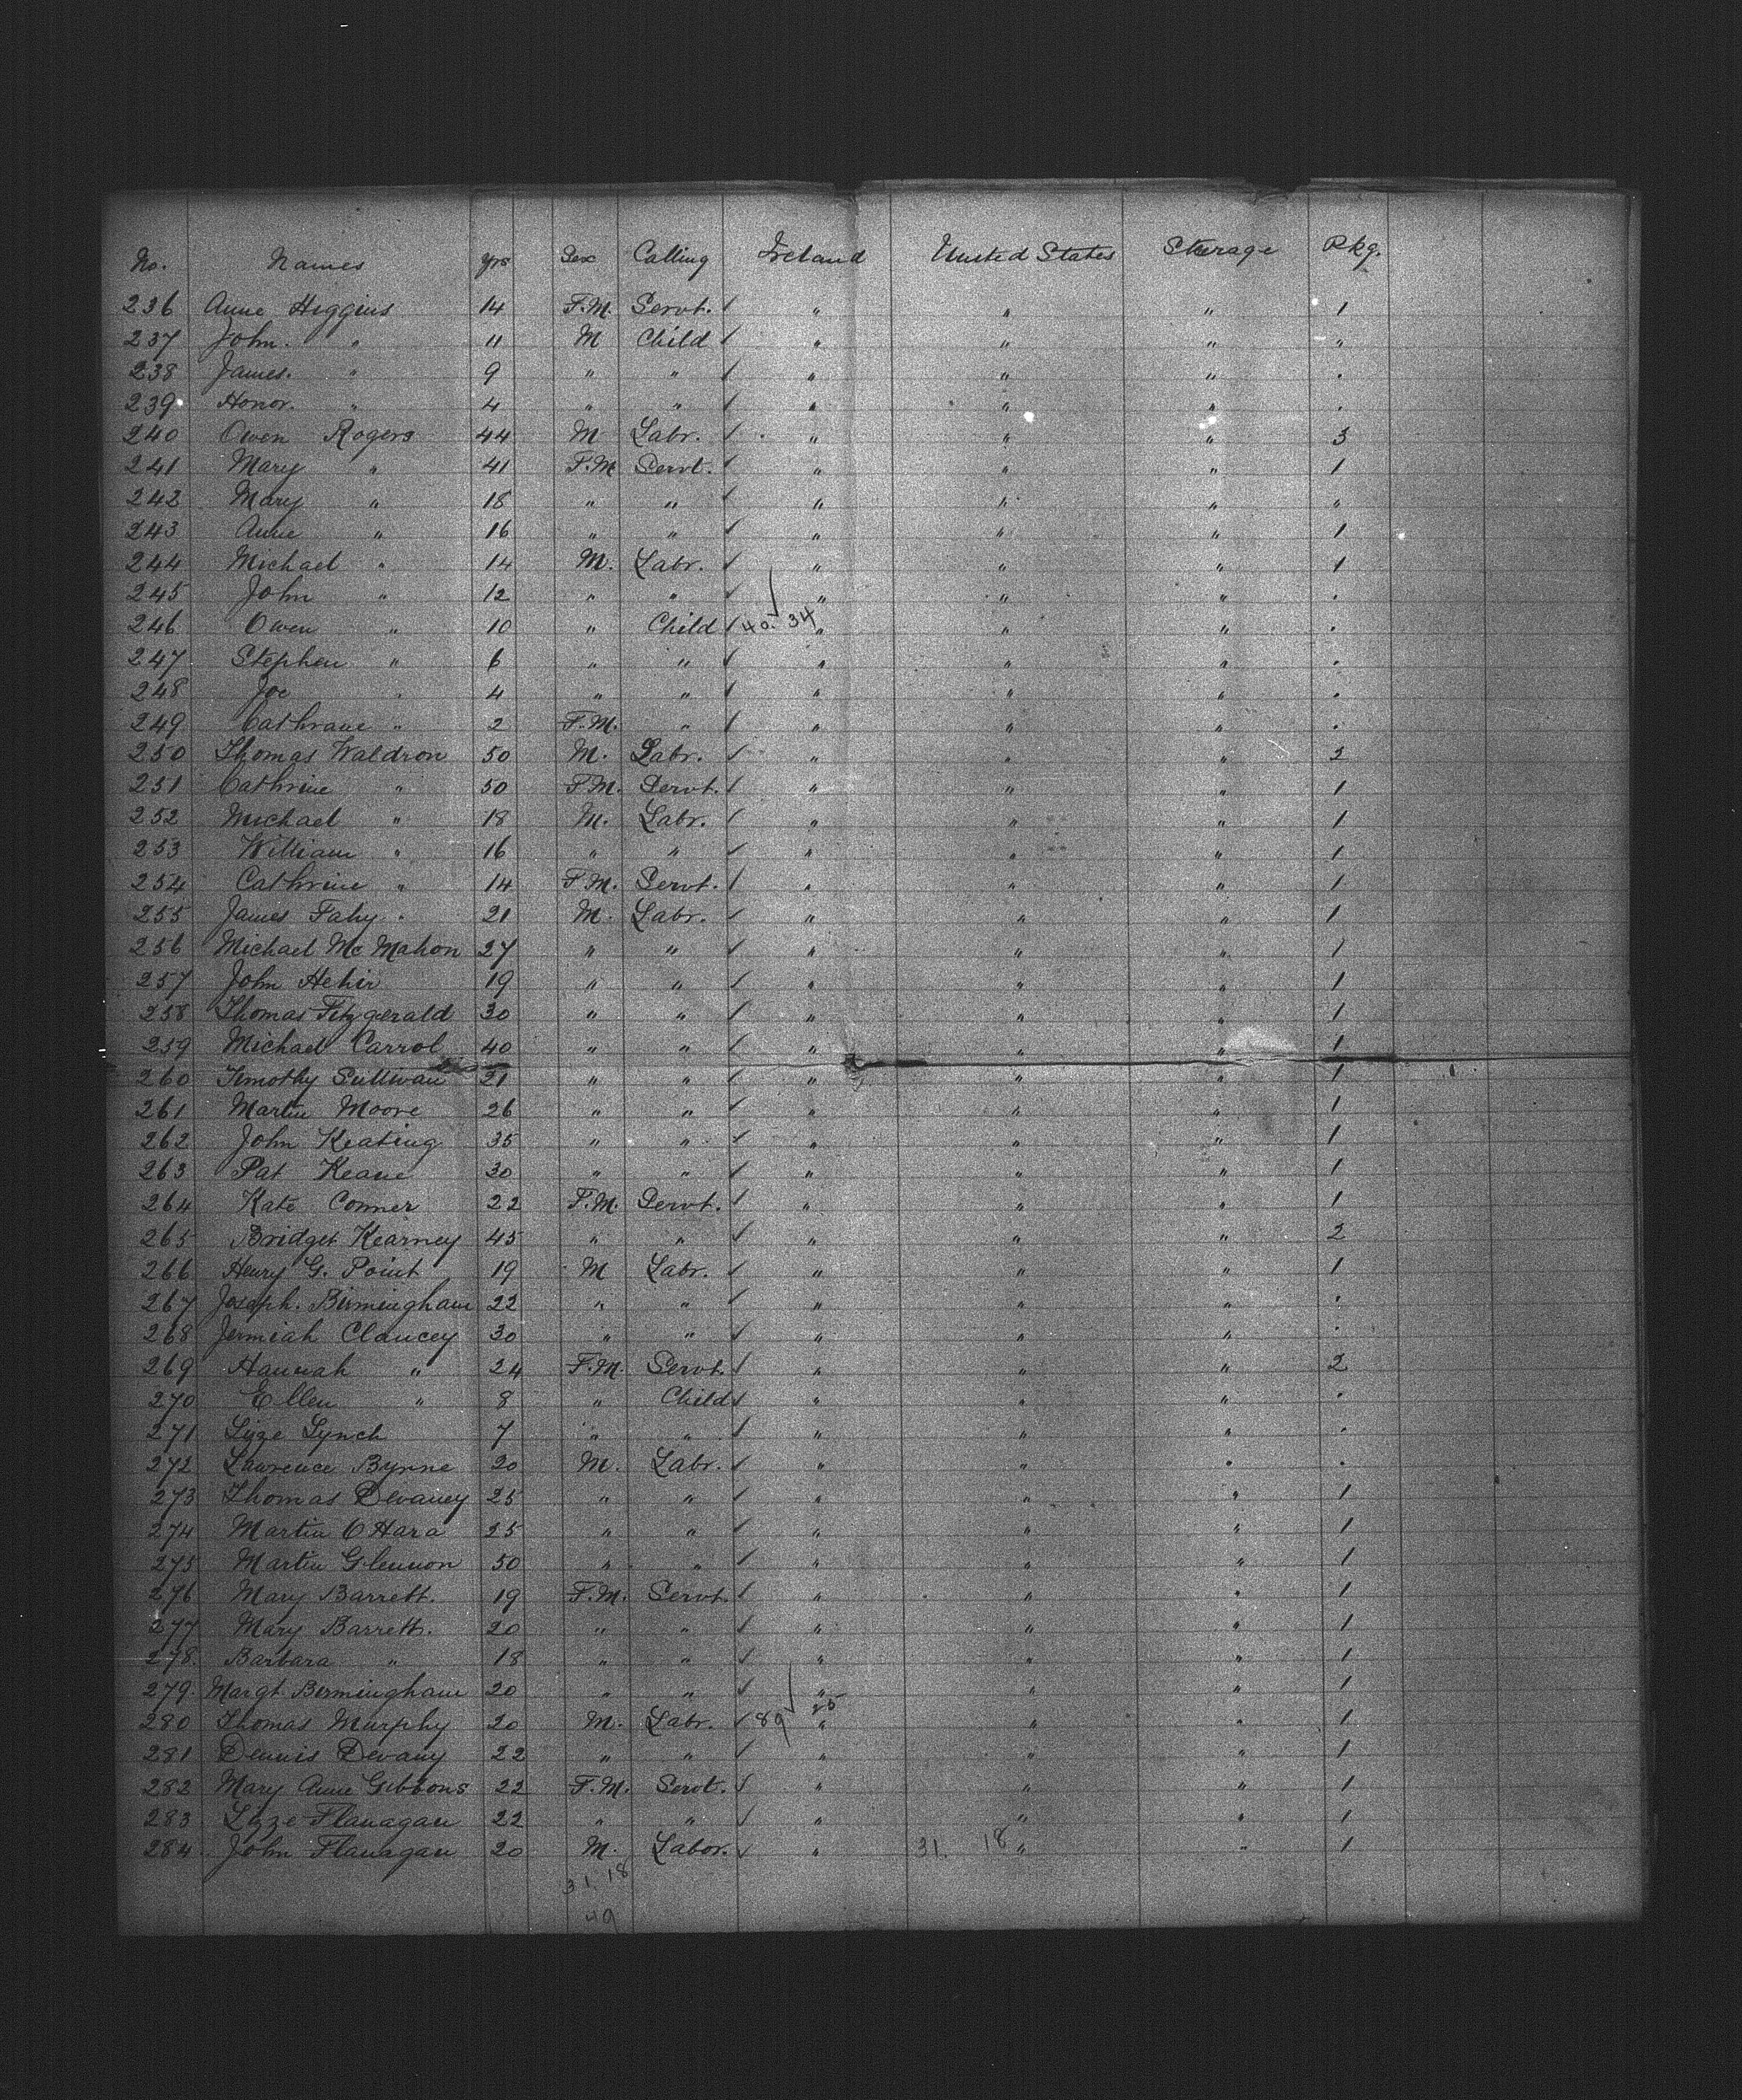 No. Names yrs Sex Calling Ireland United States Steerage Pkg.
236 Anne Higgins 14 F.M. Servt. ✓ " " " 1
237 John. " 11 M Child ✓ " " " "
238 James. " 9 " " ✓ " " " .
239 Honor. " 4 " " ✓ " " " .
240 Owen Rogers 44 M Labr. ✓ " " " 3
241 Mary " 41 F.M Servt. ✓ " " " 1
242 Mary " 18 " " ✓ " " " "
243 Anne " 16 " " ✓ " " " 1
244 Michael " 14 M. Labr. ✓ " " " 1
245 John " 12 " " ✓ " " " .
246 Owen " 10 " Child ✓ 40. 34 " " " .
247 Stephen " 6 " " ✓ " " " .
248 Joe " 4 " " ✓ " " " .
249 Cathrane " 2 F.M. " ✓ " " " .
250 Thomas Waldron 50 M. Labr. ✓ " " " 2
251 Cathrine " 50 F.M. Servt. ✓ " " " 1
252 Michael " 18 M. Labr. ✓ " " " 1
253 William " 16 " " ✓ " " " 1
254 Cathrine " 14 F.M. Servt. ✓ " " " 1
255 James Fahy " 21 M. Labr. ✓ " " " 1
256 Michael Mc Mahon 27 " " ✓ " " " 1
257 John Hehir 19 " " ✓ " " " 1
258 Thomas Fitzgerald 30 " " ✓ " " " 1
259 Michael Carrol 40 " " ✓ " " " 1
260 Timothy Sullivan 21 " " ✓ " " " 1
261 Martin Moore 26 " " ✓ " " " 1
262 John Keating 35 " " ✓ " " " 1
263 Pat Keane 30 " " ✓ " " " 1
264 Kate Conner 22 F.M. Servt. ✓ " " " 1
265 Bridget Kearney 45 " " ✓ " " " 2
266 Henry G. Point 19 M Labr. ✓ " " " 1
267 Joseph. Birmingham 22 " " ✓ " " " .
268 Jermiah Clancey 30 " " ✓ " " " .
269 Hannah " 24 F.M. Servt. ✓ " " " 2
270 Ellen " 8 " Child ✓ " " " .
271 Lizze Lynch 7 " " ✓ " " " .
272 Lawrence Byrne 20 M. Labr. ✓ " " " .
273 Thomas Devaney 25 " " ✓ " " " 1
274 Martin O Hara 25 " " ✓ " " " 1
275 Martin Glennon 50 " " ✓ " " " 1
276 Mary Barrett. 19 F.M. Servt. ✓ " " " 1
277 Mary Barrett. 20 " " ✓ " " " 1
278. Barbara " 18 " " ✓ " " " 1
279. Margt. Birmingham 20 " " ✓ " " " 1
280 Thomas Murphy 20 M. Labr. ✓ 89 25 " " " 1
281 Dennis Devany 22 " " ✓ " " " 1
282 Mary Anne Gibbons 22 F.M. Servt. ✓ " " " 1
283 Lizze Flanagan 22 " " ✓ " " " 1
284. John Flanagan 20 M. Labor. ✓ " 31. 18 " " 1
31. 18
49